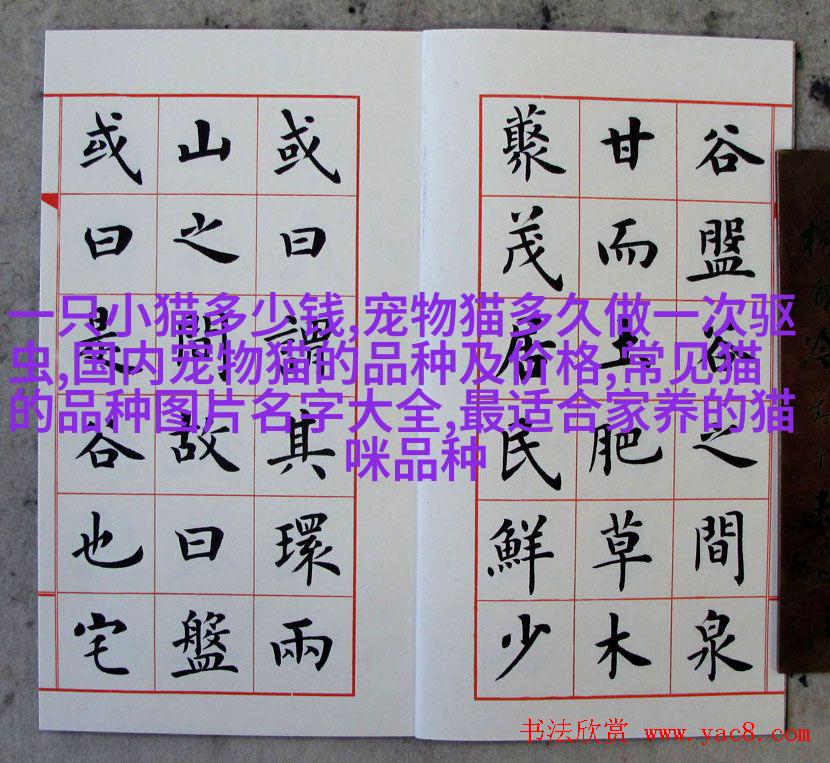 谷盤谷之間泉
甘而土肥草木
藂茂居民鮮少
或曰謂其環兩
山之間故曰盤
或曰是谷也宅
一只小猫多少钱,宠物猫多久做一次驱
虫,国内宠物猫的品种及价格,常见猫
的品种图片名字大全,最适合家养的猫
咪品种
书法欣赏 www.yac8.com